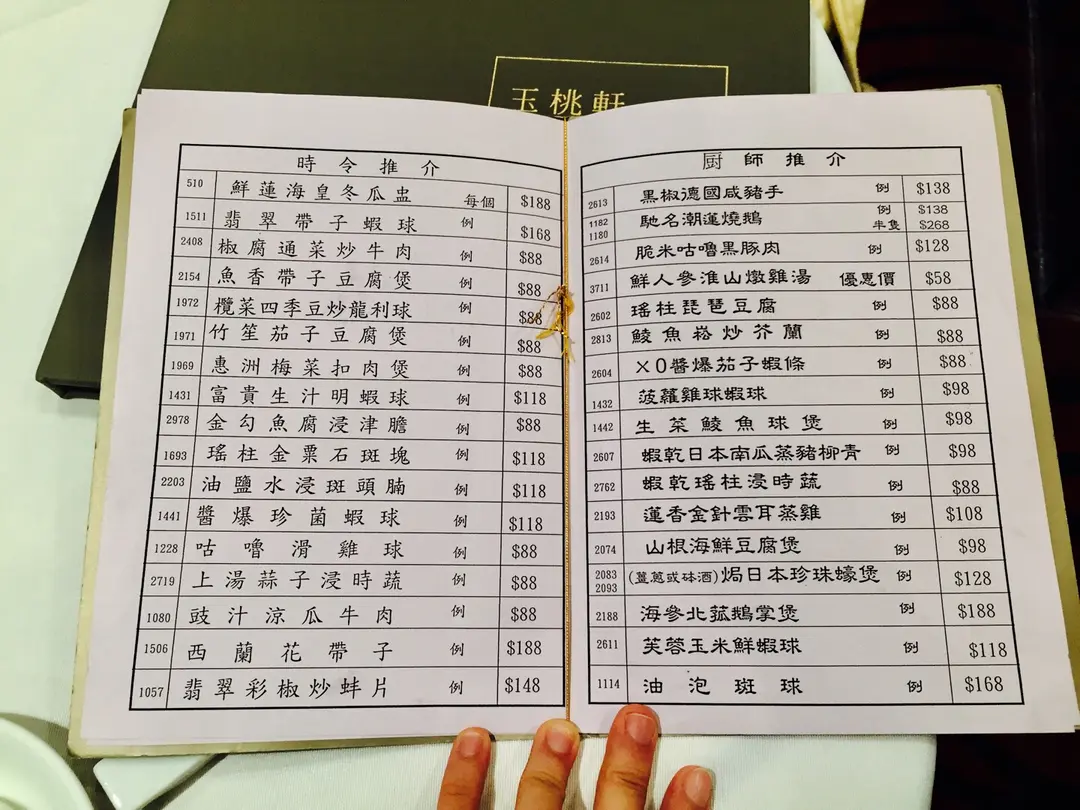 玉桃軒
時令推介
510 鮮蓮海皇冬瓜盅 每個 $188
1511 翡翠帶子蝦球 例 $168
2408 椒腐通菜炒牛肉 例 $88
2154 魚香帶子豆腐煲 例 $88
1972 欖菜四季豆炒龍利球 例 $88
1971 竹笙茄子豆腐煲 例 $88
1969 惠洲梅菜扣肉煲 例 $88
1431 富貴生汁明蝦球 例 $118
2978 金勾魚腐浸津膽 例 $88
1693 瑤柱金粟石斑塊 例 $118
2203 油鹽水浸斑頭腩 例 $118
1441 醬爆珍菌蝦球 例 $118
1228 咕嚕滑雞球 例 $88
2719 上湯蒜子浸時蔬 例 $88
1080 豉汁涼瓜牛肉 例 $88
1506 西蘭花帶子 例 $188
1057 翡翠彩椒炒蚌片 例 $148
厨師推介
2613 黑椒德國咸豬手 例 $138
1182 馳名潮蓮燒鵝 例 $138
1180 半隻 $268
2614 脆米咕嚕黑豚肉 例 $128
3711 鮮人參淮山燉雞湯 優惠價 $58
2602 瑤柱琵琶豆腐 例 $88
2813 鯪魚崧炒芥蘭 例 $88
2604 XO醬爆茄子蝦條 例 $88
1432 菠蘿雞球蝦球 例 $98
1442 生菜鯪魚球煲 例 $98
2607 蝦乾日本南瓜蒸豬柳青 例 $98
2762 蝦乾瑤柱浸時蔬 例 $88
2193 蓮香金針雲耳蒸雞 例 $108
2074 山根海鮮豆腐煲 例 $98
2083 (薑蔥或砵酒)焗日本珍珠蠔煲 例 $128
2093
2188 海參北菰鵝掌煲 例 $188
2611 芙蓉玉米鮮蝦球 例 $118
1114 油泡斑球 例 $168